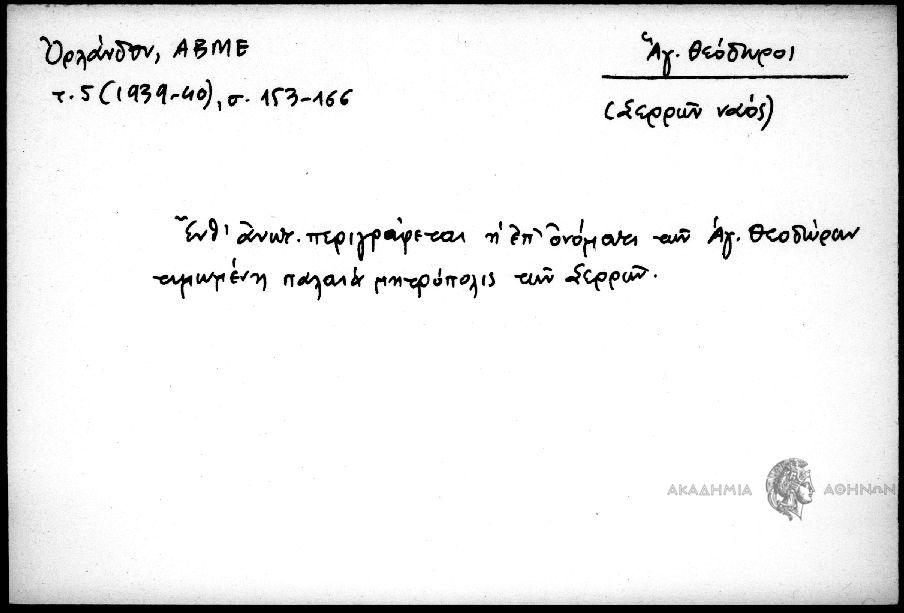 Ὀρλάνδου, ΑΒΜΕ
τ. 5 (1939-40), σ. 153-166
Ἅγ. Θεόδωροι
(Σερρῶν ναός)
Ἔνθ' ἀνωτ. περιγράφεται ἡ ἐπ' ὀνόματι τῶν Ἁγ. Θεοδώρων
τιμωμένη παλαιὰ μητρόπολις τῶν Σερρῶν.
ΑΚΑΔΗΜΙΑ ΑΘΗΝΩΝ